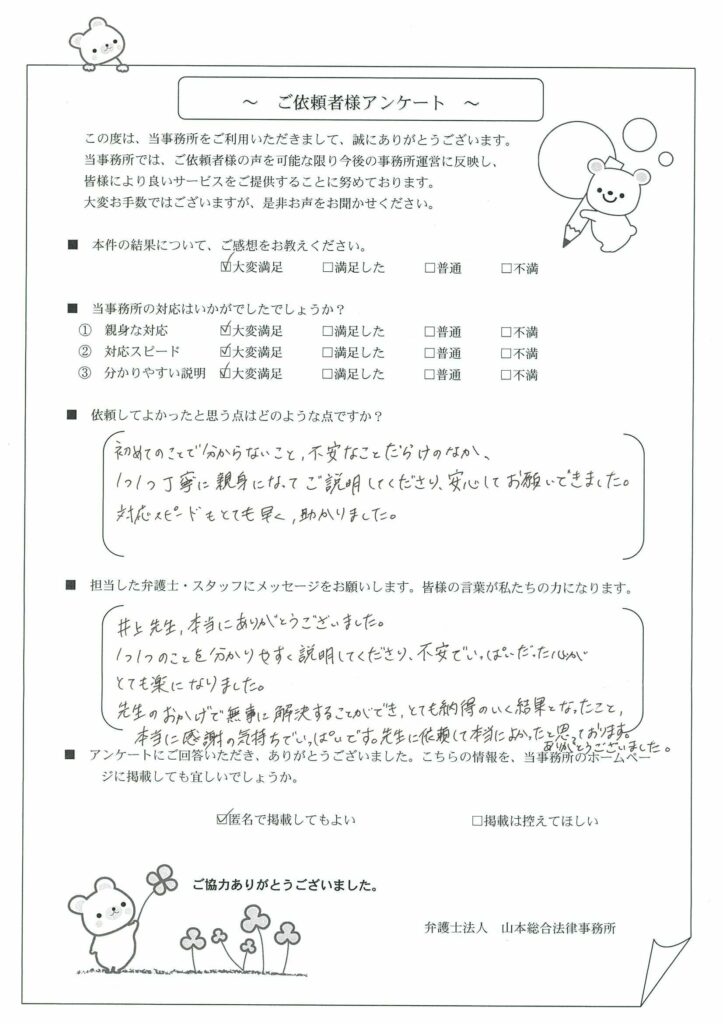 ～ ご依頼者様アンケート ～
この度は、当事務所をご利用いただきまして、誠にありがとうございます。
当事務所では、ご依頼者様の声を可能な限り今後の事務所運営に反映し、
皆様により良いサービスをご提供することに努めております。
大変お手数ではございますが、是非お声をお聞かせください。
■ 本件の結果について、ご感想をお教えください。
☑大変満足 □満足した □普通 □不満
■ 当事務所の対応はいかがでしたでしょうか？
① 親身な対応 ☑大変満足 □満足した □普通 □不満
② 対応スピード ☑大変満足 □満足した □普通 □不満
③ 分かりやすい説明 ☑大変満足 □満足した □普通 □不満
■ 依頼してよかったと思う点はどのような点ですか？
初めてのことで分からないこと,不安なことだらけのなか、
1つ1つ丁寧に親身になってご説明してくださり、安心してお願いできました。
対応スピードもとても早く,助かりました。
■ 担当した弁護士・スタッフにメッセージをお願いします。皆様の言葉が私たちの力になります。
井上先生,本当にありがとうございました。
1つ1つのことを分かりやすく説明してくださり、不安でいっぱいだった心が
とても楽になりました。
先生のおかげで無事に解決することができ,とても納得のいく結果となったこと,
本当に感謝の気持ちでいっぱいです。先生に依頼して本当によかったと思っております。
ありがとうございました。
■ アンケートにご回答いただき、ありがとうございました。こちらの情報を、当事務所のホームペー
ジに掲載しても宜しいでしょうか。
☑匿名で掲載してもよい □掲載は控えてほしい
ご協力ありがとうございました。
弁護士法人 山本総合法律事務所